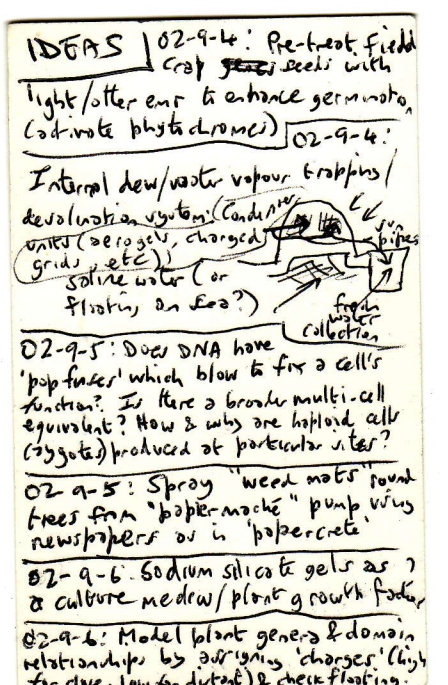 IDEAS
02-9-4: Pre-treat field
crop seeds with
light/other emr to enhance germination
(activate phytochromes)
02-9-4:
Internal dew/water vapour trapping/
system: (Condenser
units (aerogels, charged
grids, etc);
saline water (or
floating on sea?)
sun
pipes
fresh
water
collection
02-9-5: Does DNA have
'pop fuses' which blow to fix a cell's
function? Is there a broader multi-cell
equivalent? How & why are haploid cells
(zygotes) produced at particular sites?
02-9-5: Spray "weed mats" round
trees from "paper-maché" pump using
newspapers as in 'papercrete'
02-9-6. Sodium silicate gels as ?
a culture medium/plant growth factor
02-9-6: Model plant genera & domain
relationships by assigning 'charges' (high
for close, low for distant) & check floating